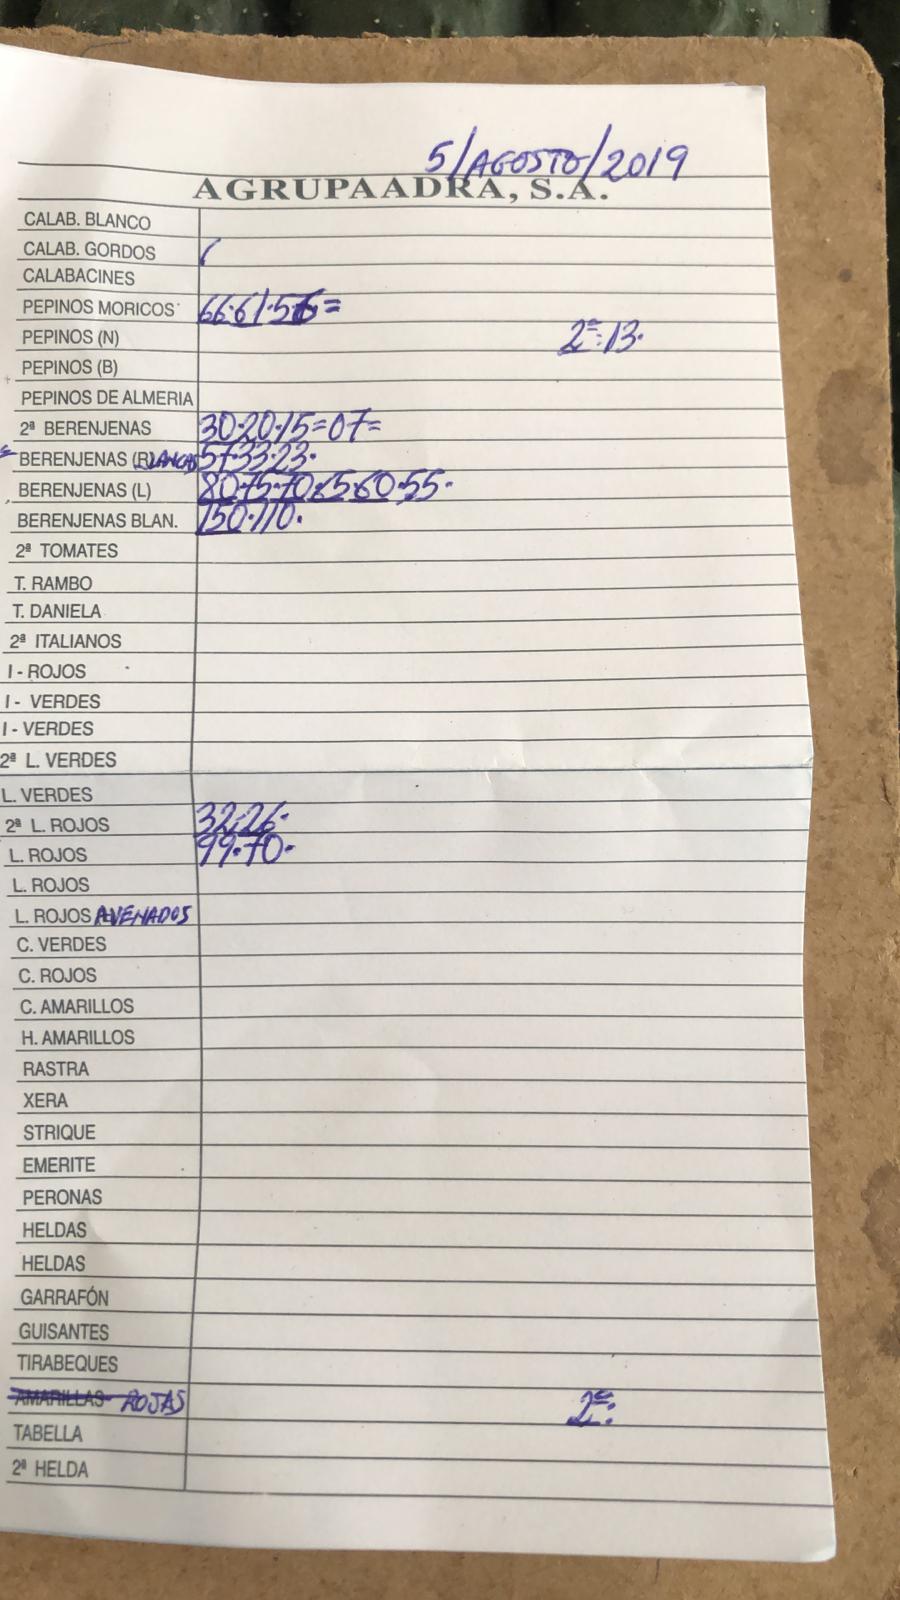 5/AGOSTO/2019
AGRUPAADRA, S.A.
CALAB. BLANCO
CALAB. GORDOS (
CALABACINES
PEPINOS MORICOS 66·61·56=
PEPINOS (N) 2ª:13·
PEPINOS (B)
PEPINOS DE ALMERIA
2ª BERENJENAS 30·20·15=07=
BERENJENAS (R) LANCAS 57·33·23·
BERENJENAS (L) 80·75·70·65·60·55·
BERENJENAS BLAN. 150·110·
2ª TOMATES
T. RAMBO
T. DANIELA
2ª ITALIANOS
I - ROJOS
I - VERDES
I - VERDES
2ª L. VERDES
L. VERDES
2ª L. ROJOS 32·26·
L. ROJOS 99·70·
L. ROJOS
L. ROJOS AVENADOS
C. VERDES
C. ROJOS
C. AMARILLOS
H. AMARILLOS
RASTRA
XERA
STRIQUE
EMERITE
PERONAS
HELDAS
HELDAS
GARRAFÓN
GUISANTES
TIRABEQUES
AMARILLAS ROJAS 2ª:
TABELLA
2ª HELDA